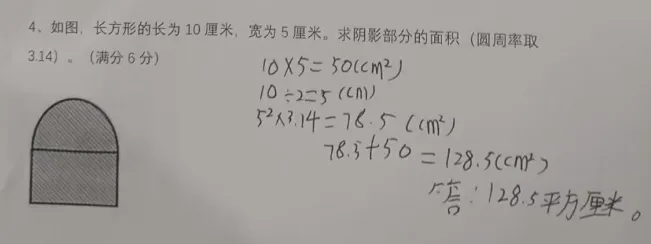 4、如图，长方形的长为 10 厘米，宽为 5 厘米。求阴影部分的面积（圆周率取
3.14）。（满分 6 分）
10×5=50(cm²)
10÷2=5(cm)
5²×3.14=78.5(cm²)
78.5+50=128.5(cm²)
答：128.5平方厘米。